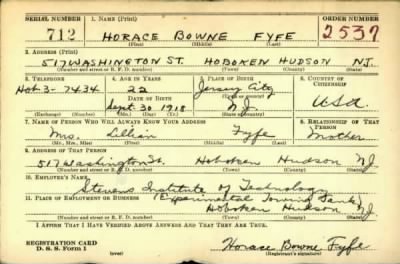 SERIAL NUMBER 1. NAME (Print) ORDER NUMBER
712 HORACE BOWNE FYFE 2537
(First) (Middle) (Last)
2. ADDRESS (Print)
517 WASHINGTON ST. HOBOKEN HUDSON N.J.
(Number and street or R. F. D. number) (Town) (County) (State)
3. TELEPHONE 4. AGE IN YEARS 5. PLACE OF BIRTH 6. COUNTRY OF CITIZENSHIP
HOb 3-7434 22 Jersey City
DATE OF BIRTH (Town or county)
Sept. 30 1918 N.J. USA
(Exchange) (Number) (Mo.) (Day) (Yr.) (State or country)
7. NAME OF PERSON WHO WILL ALWAYS KNOW YOUR ADDRESS 8. RELATIONSHIP OF THAT PERSON
Mrs. Lillian Fyfe Mother
(Mr., Mrs., Miss) (First) (Middle) (Last)
9. ADDRESS OF THAT PERSON
517 Washington St. Hoboken Hudson NJ
(Number and street or R. F. D. number) (Town) (County) (State)
10. EMPLOYER'S NAME
Stevens Institute of Technology
11. PLACE OF EMPLOYMENT OR BUSINESS (Experimental Towing Tank)
Hoboken Hudson NJ
(Number and street or R. F. D. number) (Town) (County) (State)
I AFFIRM THAT I HAVE VERIFIED ABOVE ANSWERS AND THAT THEY ARE TRUE.
REGISTRATION CARD
D. S. S. Form 1 (over) Horace Bowne Fyfe
(Registrant's signature)